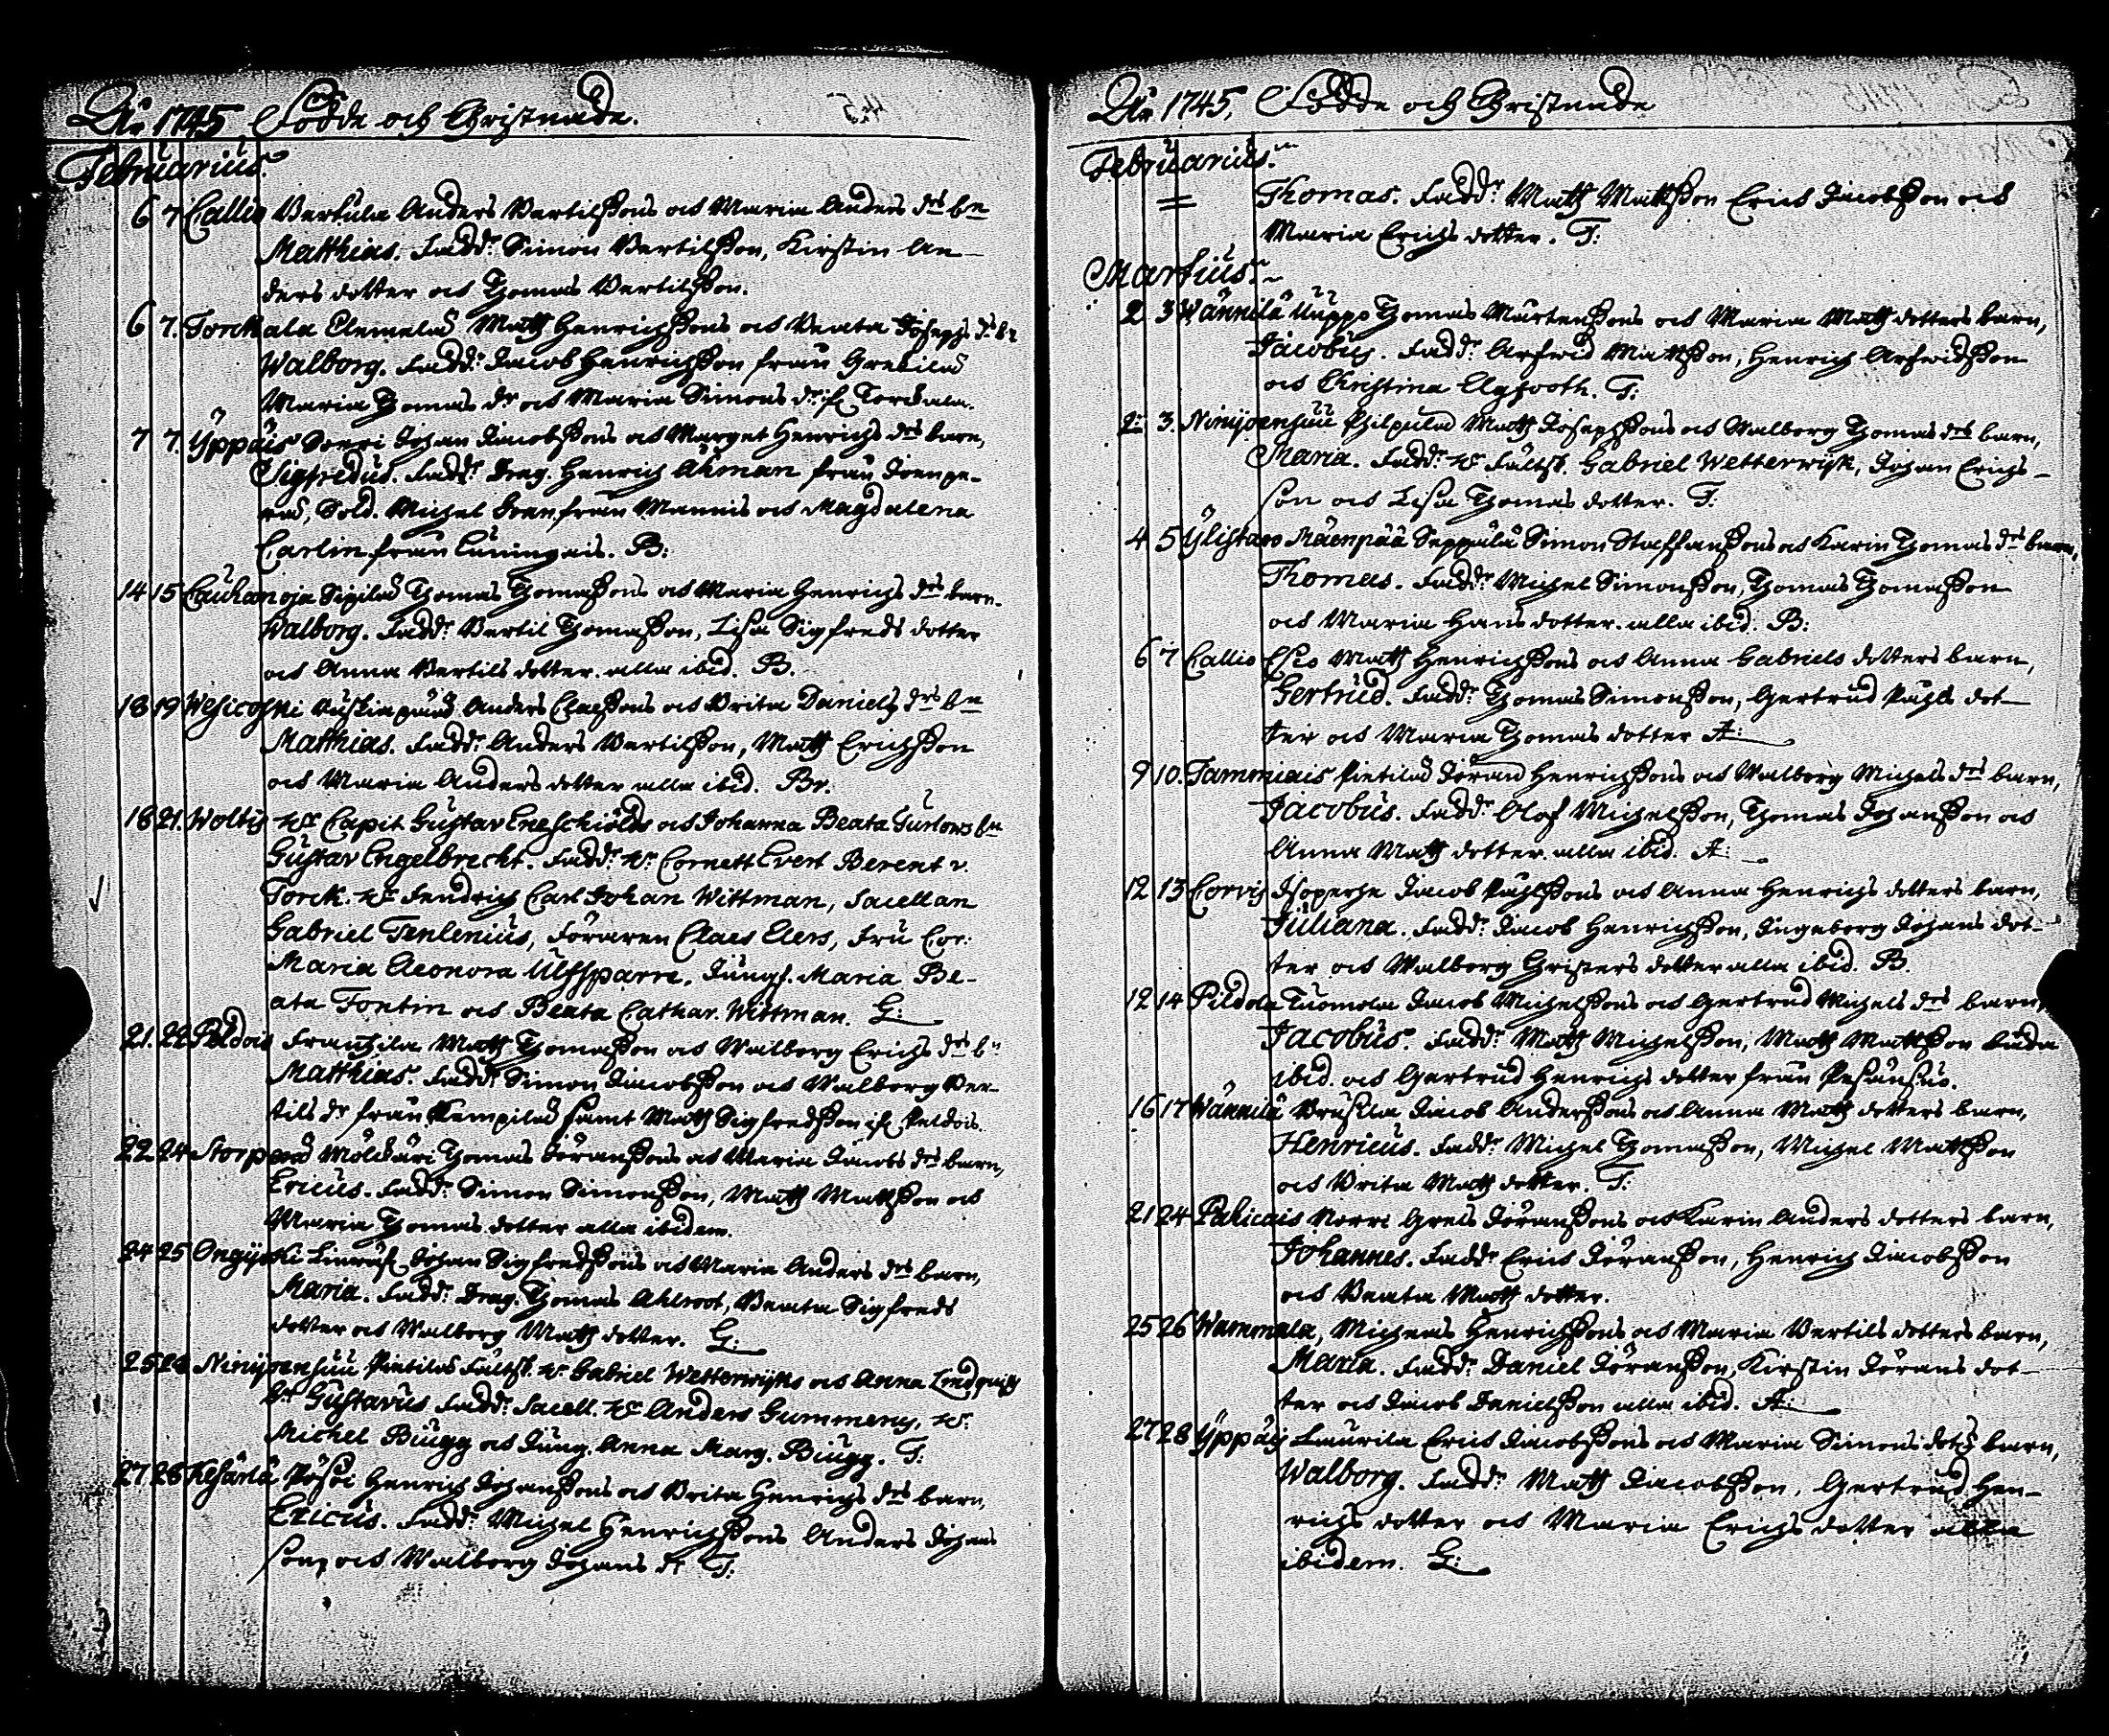 År 1745 Födde och Christnade.
Februarius.
6 7 Callio Bertula Anders Bertilssons och Maria Anders drs bn
Matthias. Fadd: Simon Bertilsson, Kirstin An-
ders dotter och Thomas Bertilsson.
6 7. Torckala Clemelas Matts Henrichssons och Beata Josephs drs bn
Walborg. Fadd: Jacob Henrichsson från Grekilas
Maria Thomas dr och Maria Simons dr Torckala.
7 7. Yppäis Sorri Johan Jacobssons och Marget Henrichs drs barn,
Sigfredus. Fadd: Drag. Henrich Åhman från Joenpe-
ras, Sold. Michel från Mannis och Magdalena
Carlin från Caningais. B:
14 15 Cauhanoja Sipilas Thomas Thomassons och Maria Henrichs drs barn.
Walborg. Fadd: Bertil Thomasson, Lisa Sigfreds dotter
och Anna Bertils dotter alla ibid. B.
18 19 Wesicoski Anders Claessons och Brita Daniels drs bn
Matthias. Fadd: Anders Bertilsson, Matts Erichsson
och Maria Anders dotter alla ibid. Br.
18 21. Woltis Hr Capit Gustav Eneschiölds och Johanna Beata Gurlows bn
Gustav Engelbrecht. Fadd: Hr Cornett Evert Berent v.
Torck. Hr Fendrich Carl Johan Wittman, Sacellan
Gabriel Tenlenius, Föraren Claes Elers, Fru Cor:
Maria Eleonora Ulfsparre, Jungf. Maria Be-
ata Fontin och Beata Cathar. Wittman. G:
21. 22 Peldois Frantsila Matts Thomasson och Walborg Erichs drs bn
Matthias. Fadd: Simon Jacobsson och Walborg Ber-
tils dr från Kempilas samt Matts Sigfredsson Peldois.
22 24 Storperä Möldäri Thomas Jöranssons och Maria Jacobs drs barn,
Ericus. Fadd: Simon Simonsson, Matts Mattsson och
Maria Thomas dotter alla ibidem.
24 25 Ongijoki Johan Sigfredssons och Maria Anders drs barn,
Maria. Fadd: Drag. Thomas Ahlroot, Beata Sigfreds
dotter och Walborg Matts dotter. G:
25 28 Ninijoensuu Pietilas Fältsk. Hr Gabriel Wetterwijks och Anna Lindquist
bn Gustavus Fadd: Sacell. Hr Anders Gummerus, Hr
Michel Biugg och Jung. Anna Marg. Biugg. T:
27 28 Kesärlä Pösöi Henrich Johanssons och Brita Henrichs drs barn,
Ericus. Fadd: Michel Henrichssons Anders Johans
son, och Walborg Johans dr T:
År 1745. Födde och Christnade
Februarius.
Thomas. Fadd: Matts Mattsson Erich Jacobsson och
Maria Erichs dotter. T:
Martius.
2 3 Wännilä Uuppo Thomas Mårtenssons och Maria Matts dotters barn,
Jacobus. Fadd: Arfwid Mattsson, Henrich Arfwidsson
och Christina Elgfooth. T:
2. 3. Ninijoensuu Philpulas Matts Josephssons och Walborg Thomas drs barn,
Maria. Fadd: Hr Fältsk. Gabriel Wetterwijk, Johan Erichs-
son och Lisa Thomas dotter. T:
4 5 Ylistaro Mäenpää Seppälä Simon Staffanssons och Karin Thomas drs barn,
Thomas. Fadd: Michel Simonsson, Thomas Thomasson
och Maria Hans dotter alla ibid. B:
6 7 Callio Esco Matts Henrichssons och Anna Gabriels dotters barn,
Gertrud. Fadd: Thomas Simonsson, Gertrud Påhls dot-
ter och Maria Thomas dotter A:
9 10. Tammiais Pietilas Jöran Henrichssons och Walborg Michels drs barn,
Jacobus. Fadd: Olof Michelsson, Thomas Johansson och
Anna Matts dotter alla ibid. A:
12 13 Corvis Isoperhe Jacob Påhlssons och Anna Henrichs dotters barn,
Juliana. Fadd: Jacob Henrichsson, Ingeborg Johans dot-
ter och Walborg Christers dotter alla ibid. B.
12 14 Pildola Tuomola Jacob Michelssons och Gertrud Michels drs barn,
Jacobus. Fadd: Matts Michelsson, Matts Mattsson båda
ibid. och Gertrud Henrichs dotter från Pesänsuo.
16 17 Wännilä Bruskla Jacob Anderssons och Anna Matts dotters barn,
Henricus. Fadd: Michel Thomasson, Michel Mattsson
och Brita Matts dotter. T:
21 24 Palicais Norri Grels Jöranssons och Karin Anders dotters barn,
Johannes. Fadd: Erich Jöransson, Henrich Jacobsson
och Beata Matts dotter.
25 26 Wammala, Michels Henrichssons och Maria Bertils dotters barn,
Maria. Fadd: Daniel Jöransson, Kirstin Jörans dot-
ter och Jacob Danielsson alla ibid. A:
27 28 Yppäis Laurila Erich Jacobssons och Maria Simons dotrs barn,
Walborg. Fadd: Matts Jacobsson, Gertrud Hen-
richs dotter och Maria Erichs dotter alla
ibidem. G: